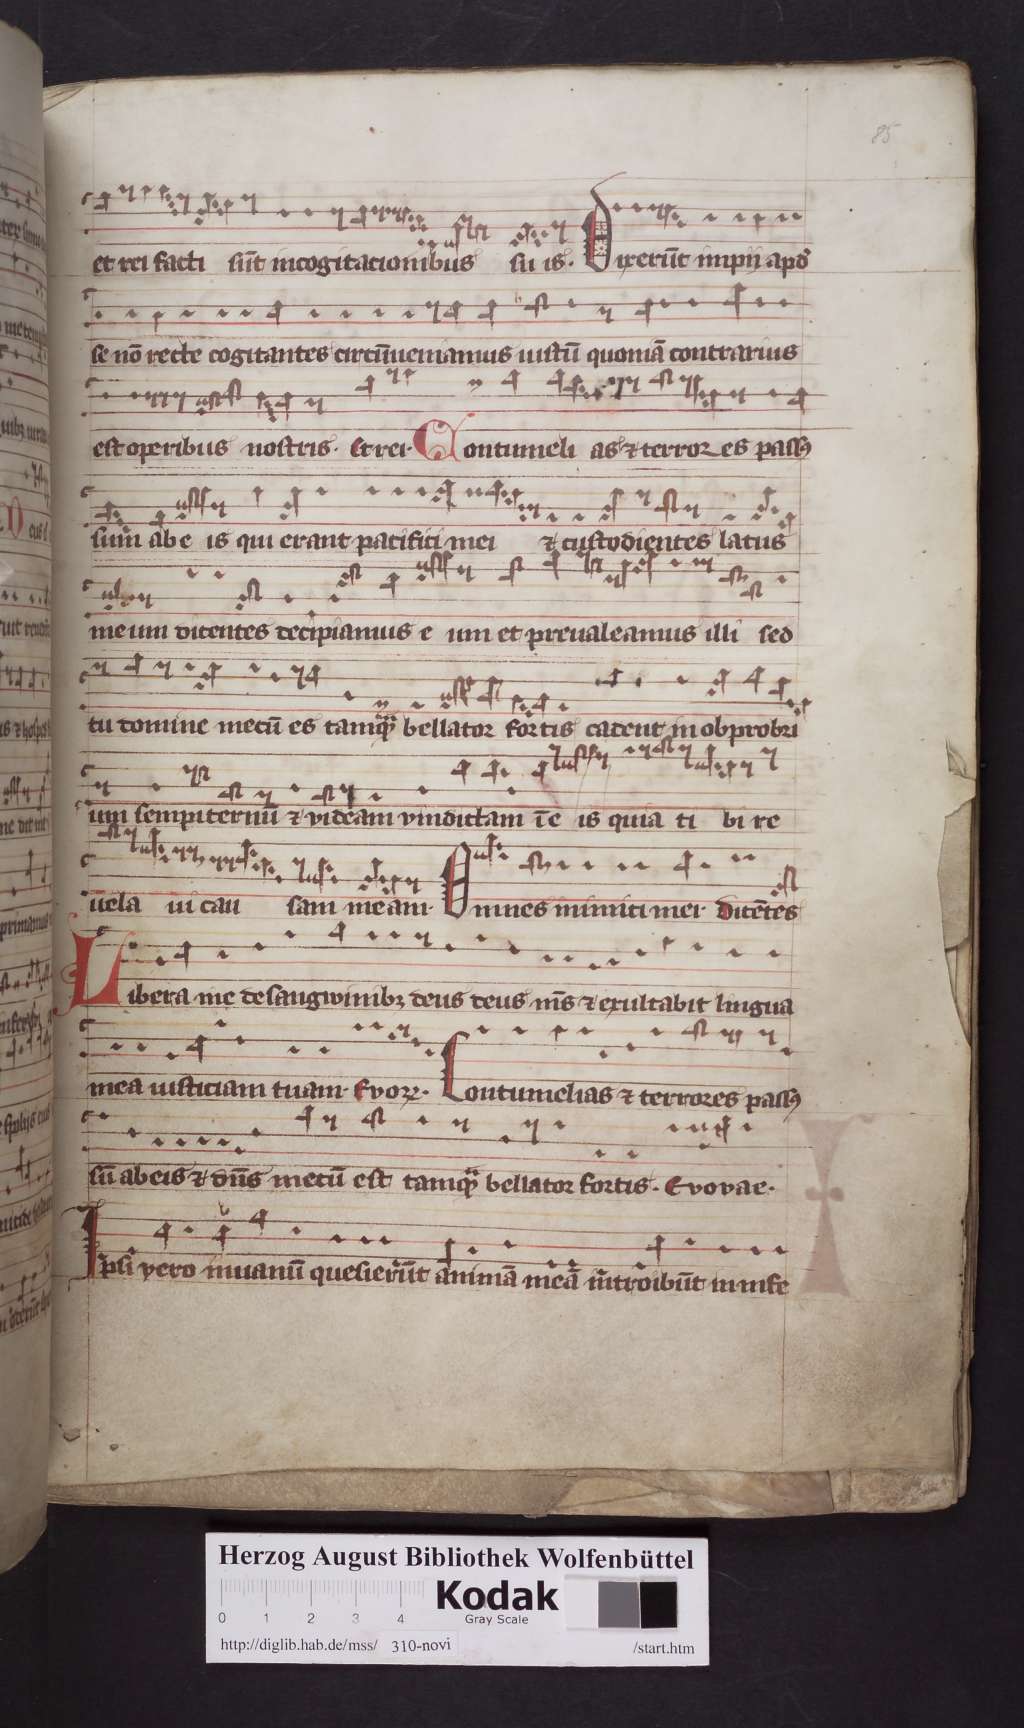 85
et rei facti sūt in cogitacionibus su is. Dixerūt impij apd̄
se nō recte cogitantes circūueniamus iustū quoniā contrarius
est operibus nostris. Et rei. Contumeli as & terrores pass9
sum ab e is qui erant pacifici mei & custodientes latus
meum dicentes decipiamus e um et preualeamus illi sed
tu domine mecū es tamqȝ bellator fortis cadent in obprobri
um sempiternū & videam vindictam ī e is quia ti bi re
uela ui cau sam meam. Omnes inimici mei dicētes
Libera me de sangwinibȝ deus deus m̄s & exultabit lingua
mea iusticiam tuam. Evoꝛ. Contumelias & terrores pass9
sū ab eis & dn̄s mecū est tamqȝ bellator fortis. Evovae.
Ipsi vero in uanū quesierūt animā meā introibūt in infe
Herzog August Bibliothek Wolfenbüttel
0 1 2 3 4 Kodak
Gray Scale
http://diglib.hab.de/mss/ 310-novi /start.htm